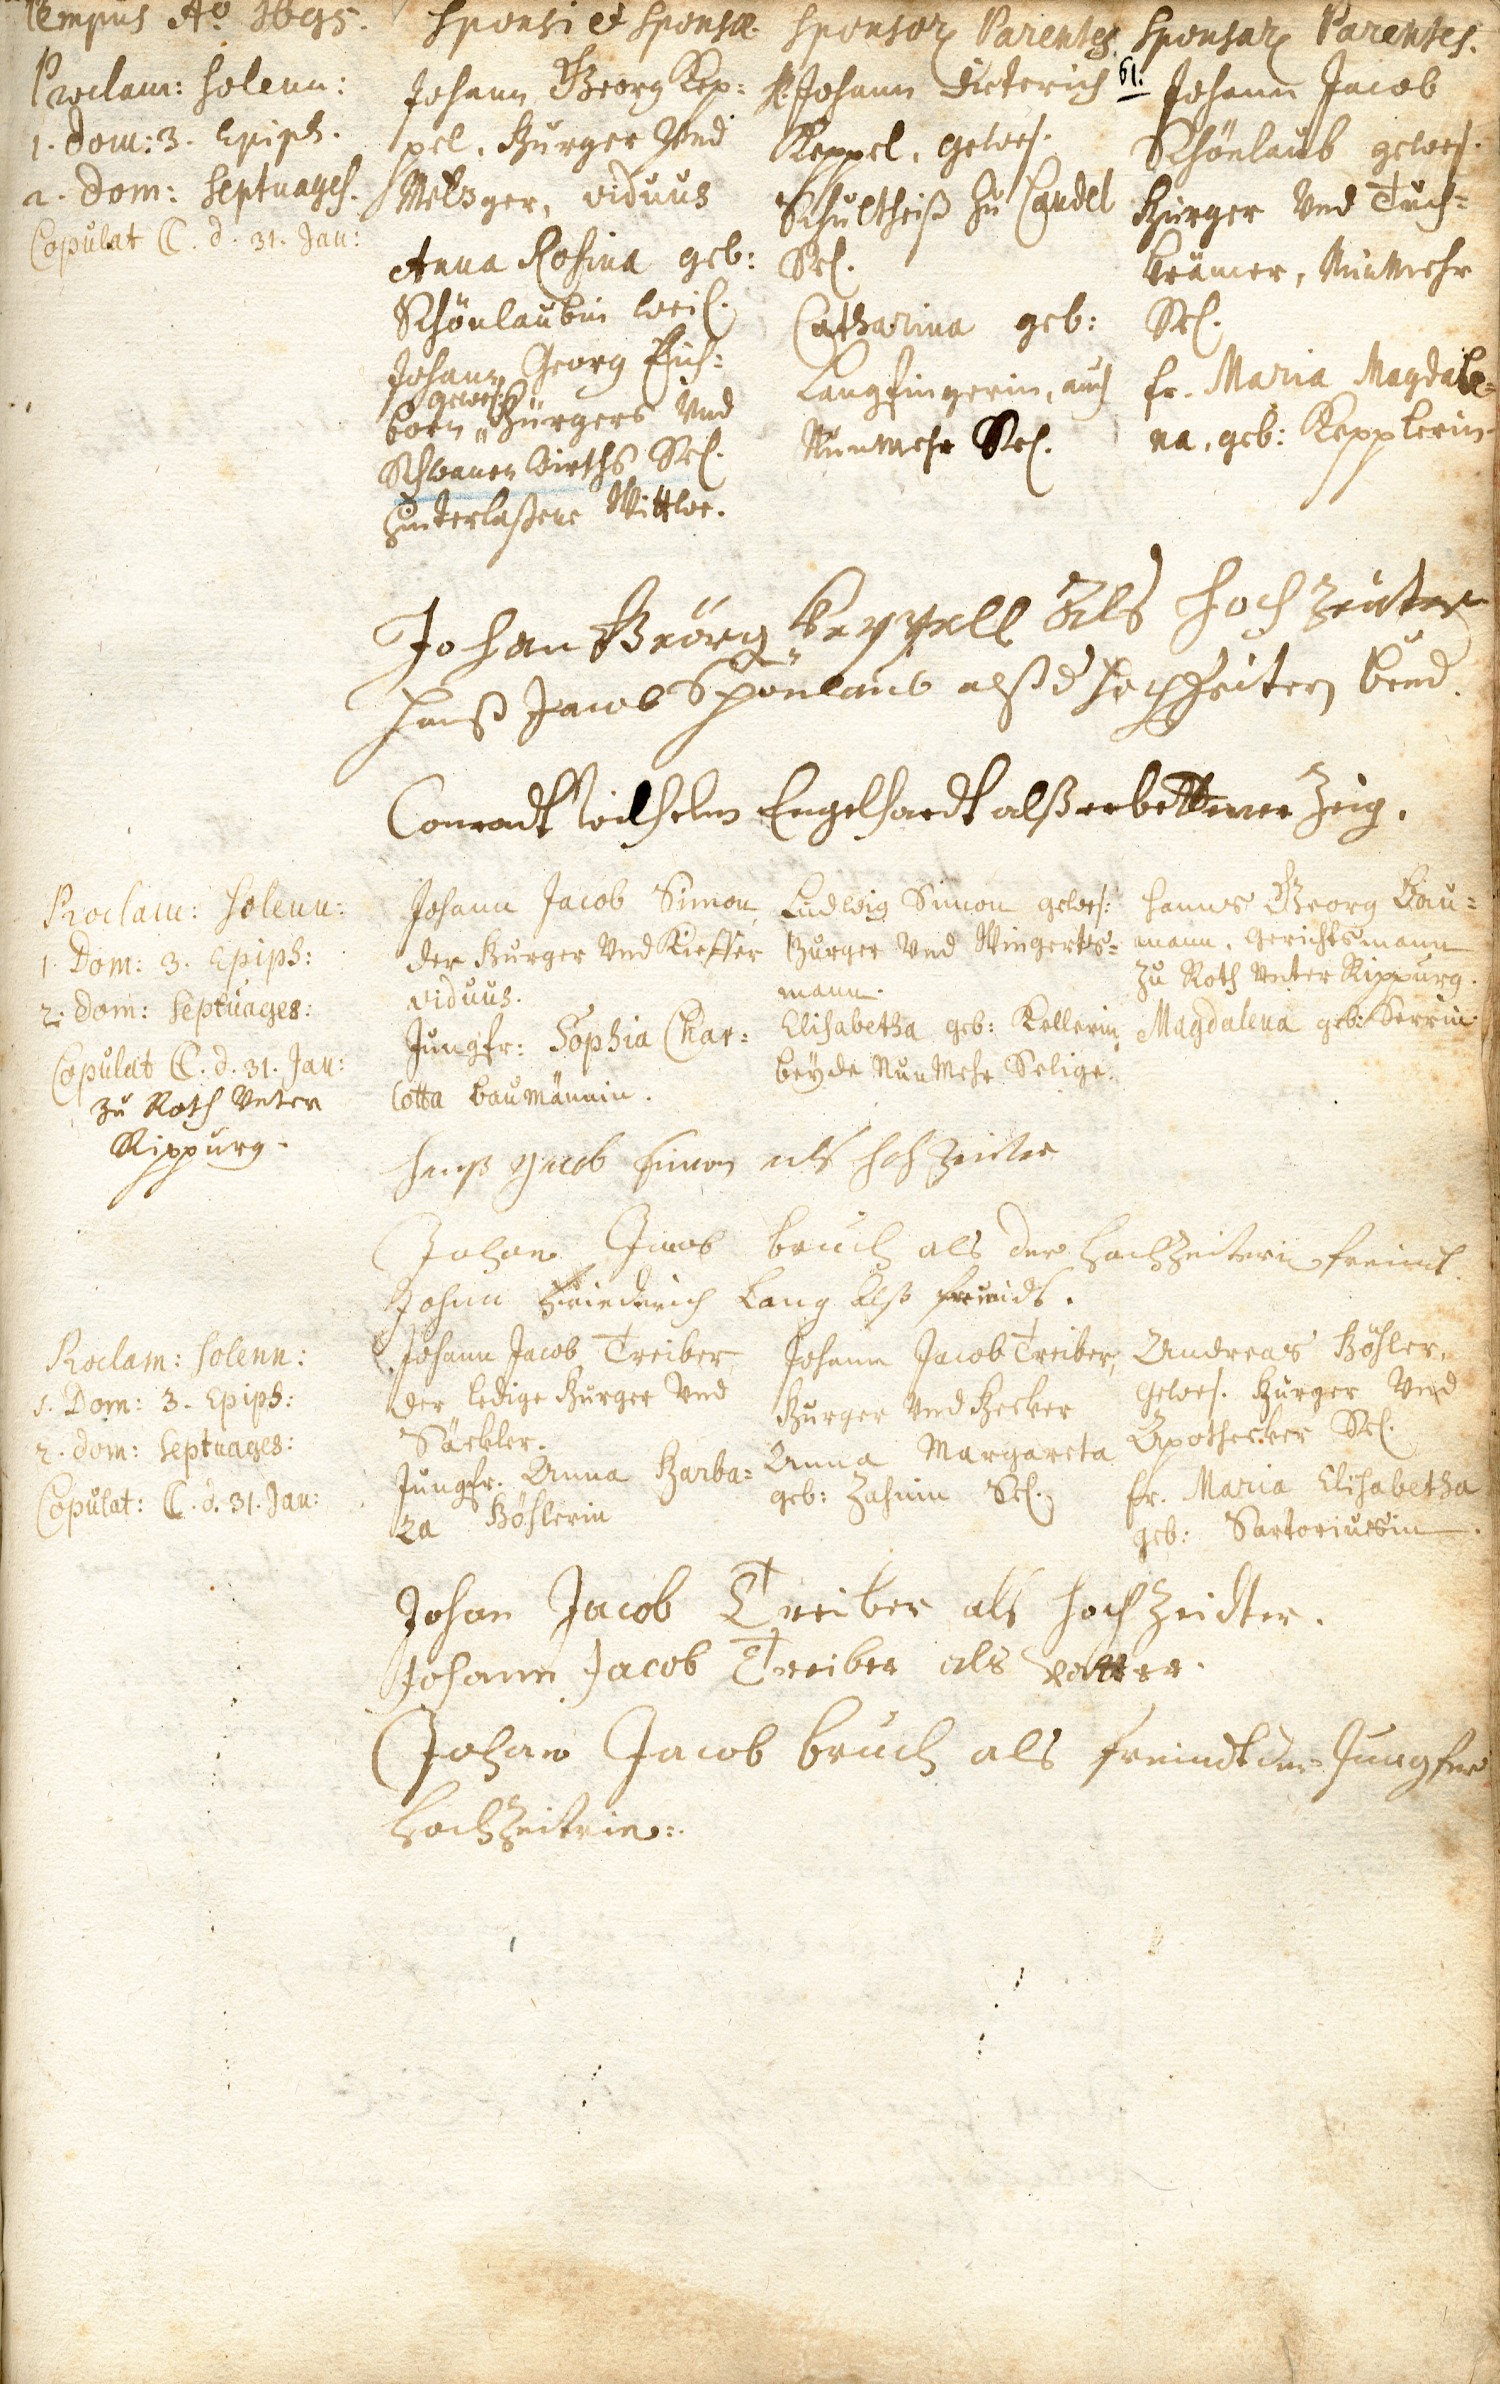 Tempus Ao. 1695.
Proclam: Solenn:
1. Dom: 3. Epiph.
2. Dom: Septuages.
Copulat C. d. 31. Jan:
Sponsi et Sponsæ.
Johann Georg Kep=
pel, Burger Vnd
Metzger, viduus
Anna Rosina geb:
Schönlaubin weil.
Johann Georg Eich=
gewes.
born Bürgers Vnd
Schwanen Wirths Sel.
hinterlaßene Wittwe.
Sponsor. Parentes.
Johann Dieterich
Keppel, gewes.
Schultheiß zu Candel
Sel.
Catharina geb:
Langfingerin, auch
Nunmehr Sel.
Sponsar. Parentes.
61.
Johann Jacob
Schönlaub gewes.
Burger Vnd Tuch=
krämer, Nunmehr
Sel.
fr. Maria Magdale=
na, geb: Kepplerin.
Johan Geörg Keppell Als Hoch Zeiter
Hanß Jacob Schönlaub alß d Hochzeitern
Conradt Wilhelm Engelhardt alß erbettener Zeig.
Proclam: Solenn:
1. Dom: 3. Epiph:
2. Dom: Septuages:
Copulat C. d. 31. Jan:
zu Roth Vnter
Rippurg.
Johann Jacob Simon
der Burger Vnd Kieffer
viduus.
Jungfr: Sophia Char=
lotta Baumännin.
Ludwig Simon gewes:
Burger Vnd Wingerts=
mann.
Elisabetha geb: Kellerin,
beyde Nunmehr Selige.
Hannß Georg Bau=
mann, Gerichtsmann
zu Roth Vnter Rippurg.
Magdalena geb: Serrin.
Hanß Jacob Simon als Hochzeiter
Johan Jacob Bruch als der Hochzeiterin freind.
Johan Friederich Lang Alß freinds.
Proclam: Solenn:
1. Dom: 3. Epiph:
2. Dom: Septuages:
Copulat: C. d. 31. Jan:
Johann Jacob Treiber
der ledige Burger Vnd
Säckler.
Jungfr. Anna Barba=
ra Böhlerin
Johann Jacob Treiber,
Burger Vnd Becker
Anna Margareta
geb: Zahnin Sel.
Andreas Böhler,
Gewes. Burger Vnd
Apothecker Sel.
fr. Maria Elisabetha
geb: Sartoriusin.
Johan Jacob Treiber als Hoch Zeidter.
Johann Jacob Treiber als vatter.
Johan Jacob Bruch als freindt der Jungfer
Hochzeiterin.